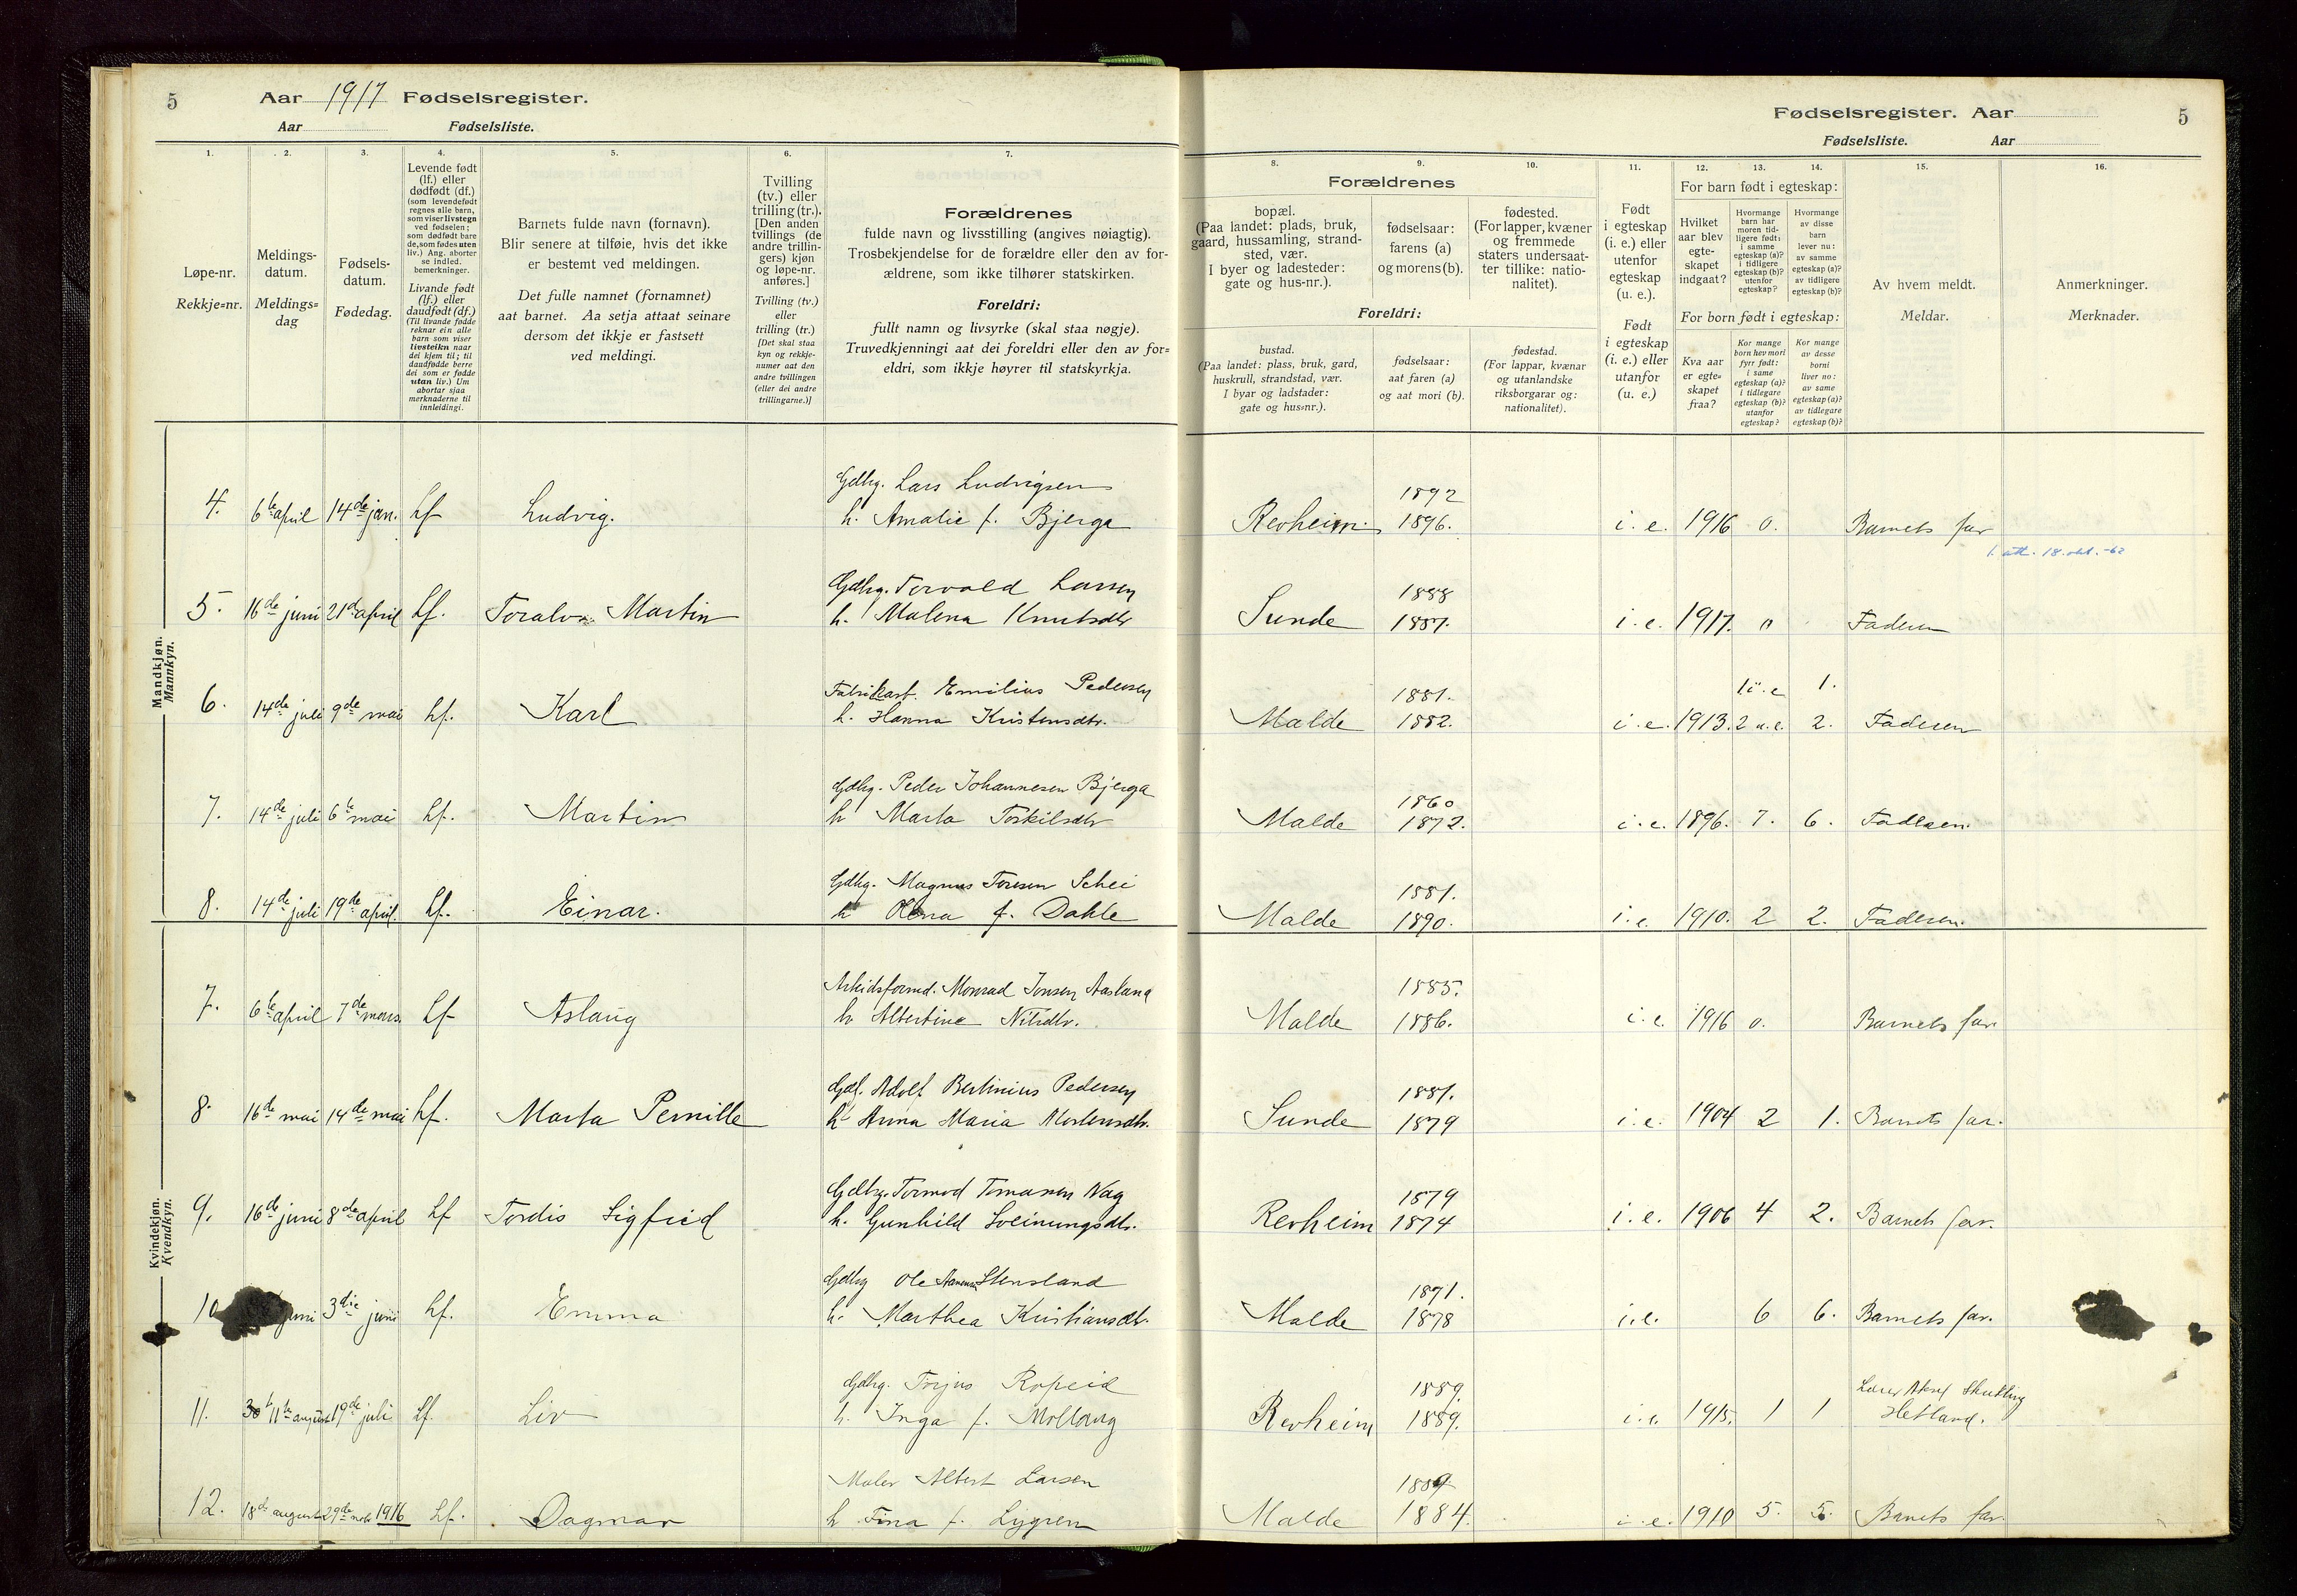 5 Aar 1917 Fødselsregister.
Aar Fødselsliste.
Fødselsregister. Aar 5
Fødselsliste. Aar
1.
Løpe-nr.
Rekkje=nr.
2.
Meldings-
datum.
Meldings=
dag
3.
Fødsels-
datum.
Fødedag.
4.
Levende født
(lf.) eller
dødfødt (df.)
(som levendefødt
regnes alle barn,
som viser livstegn
ved fødselen;
som dødfødt bare
de, som fødes uten
liv.) Ang. aborter
se indled.
bemerkninger.
Livande født
(lf.) eller
daudfødt (df.)
(Til livande fødde
reknar ein alle
barn som viser
livsteikn naar
dei kjem til; til
daudfødde berre
dei som er fødde
utan liv.) Um
abortar sjaa
merknaderne til
innleidingi.
5.
Barnets fulde navn (fornavn).
Blir senere at tilføie, hvis det ikke
er bestemt ved meldingen.
Det fulle namnet (fornamnet)
aat barnet. Aa setja attaat seinare
dersom det ikkje er fastsett
ved meldingi.
6.
Tvilling
(tv.) eller
trilling (tr.).
[Den anden
tvillings (de
andre trillin-
gers) kjøn
og løpe-nr.
anføres.]
Tvilling (tv.)
eller
trilling (tr.)
[Det skal staa
kyn og rekkje-
numer aat den
andre tvillingen
(eller dei andre
trillingarne.)]
7.
Forældrenes
fulde navn og livsstilling (angives nøiagtig).
Trosbekjendelse for de forældre eller den av for-
ældrene, som ikke tilhører statskirken.
Foreldri:
fullt namn og livsyrke (skal staa nøgje).
Truvedkjenningi aat dei foreldri eller den av for=
eldri, som ikkje høyrer til statskyrkja.
8. 9. 10.
Forældrenes
bopæl.
(Paa landet: plads, bruk,
gaard, hussamling, strand-
sted, vær.
I byer og ladesteder:
gate og hus-nr.).
fødselsaar:
farens (a)
og morens (b).
fødested.
(For lapper, kvæner
og fremmede
staters undersaat-
ter tillike: natio-
nalitet).
Foreldri:
bustad.
(Paa landet: plass, bruk, gard,
huskrull, strandstad, vær.
I byar og ladstader:
gate og hus=nr.).
fødselsaar:
aat faren (a)
og aat mori (b).
fødestad.
(For lappar, kvænar
og utanlandske
riksborgarar og:
nationalitet).
11.
Født
i egteskap
(i. e.) eller
utenfor
egteskap
(u. e.).
Født
i egteskap
(i. e.) eller
utanfor
(u. e.)
12. 13. 14.
For barn født i egteskap:
Hvilket
aar blev
egte-
skapet
indgaat?
Hvormange
barn har
moren tid-
ligere født:
i samme
egteskap (a)?
i tidligere
egteskap (b)?
utenfor
egteskap?
Hvormange
av disse
barn
lever nu:
av samme
egteskap (a)?
av tidligere
egteskap (b)?
For born født i egteskap:
Kva aar
er egte=
skapet
fraa?
Kor mange
born hev mori
fyrr født:
i same
egteskap (a)?
i tidlegare
egteskap (b)?
utanfor
egteskap?
Kor mange
av desse
borni
liver no:
av same
egteskap (a)?
av tidlegare
egteskap (b)?
15.
Av hvem meldt.
Meldar.
16.
Anmerkninger.
Merknader.
Mandkjøn.
Mannkyn.
Gdbrg. Lars Ludvigsen 1892
4. 6te april 14de jan. Lf Ludvig. h. Amalie f. Bjerga Revheim. 1896. i. e. 1916 0. Barnets far
1. att. 18. okt. -62
Gdbrg. Torvald Larsen 1888
5. 16de juni 21de april Lf. Toralv Martin h. Malena Knutsdtr Sunde 1887. i. e. 1917. 0 Faderen
Fabrikarb. Emilius Pedersen 1881. 1 i. e 1.
6. 14de juli 9de mai Lf. Karl h. Hanna Kristensdtr. Malde 1882. i. e. 1913. 2 u. e. 2. Faderen
Gdbrg. Peder Johannesen Bjerga 1860
7. 14de juli 6te mai Lf. Martin h Marta Torkilsdtr Malde 1872. i. e. 1896. 7. 6. Faderen.
Gdbrg. Magnus Toresen Schei 1881.
8. 14de juli 19de april. Lf. Einar. h Olena f. Dahle Malde 1890. i. e. 1910. 2 2. Faderen.
Kvindekjøn.
Kvendkyn.
Arbeidsformd. Monrad Jonsen Aasland 1885.
7. 6te april 7de mars. Lf Aslaug h Albertine Nilsdtr. Malde 1886. i. e. 1916 0. Barnets far.
Adolf Bertinius Pedersen 1881.
8. 16de mai 14de mai Lf. Marta Pernille h Anna Maria Mortensdtr. Sunde 1879 i. e. 1904 2 1. Barnets far.
Gdbrg. Tormod Tomasen Nag 1879
9. 16de juni 8de april Lf Tordis Sigfrid h. Gunhild Sveinungsdtr. Revheim 1874 i. e. 1906 4 2. Barnets far.
Gdbrg Ole Stensland 1871.
10 juni 3die juni Lf. Emma h. Marthea Kristiansdtr. Malde 1878 i. e. 6 6. Barnets far.
Gdbrg. Torjus Ropeid 1889. Lærer
11. 11te august 19de juli Lf. Liv h. Inga f. Revheim 1889. i. e. 1915. 1 1 Hetland.
Maler Albert Larsen 1889
12. 18de august 29de novbr 1916 Lf. Dagmar h Tina f. Lygren Malde 1884. i. e. 1910 5. 5. Barnets far.